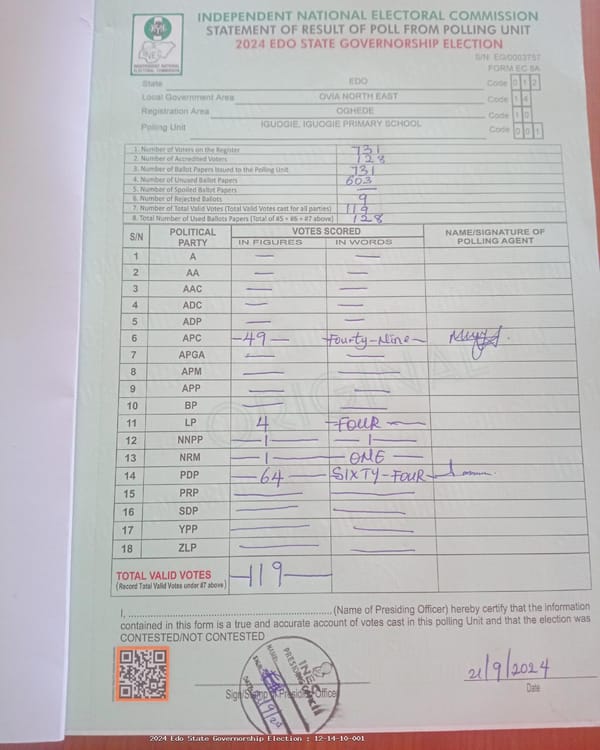 INDEPENDENT NATIONAL ELECTORAL COMMISSION
STATEMENT OF RESULT OF POLL FROM POLLING UNIT
2024 EDO STATE GOVERNORSHIP ELECTION
INDEPENDENT NATIONAL ELECTORAL COMMISSION
S/N: EG/0003757
FORM EC 8A
State EDO Code 0 1 2
Local Government Area OVIA NORTH EAST Code 1 4
Registration Area OGHEDE Code 1 0
Polling Unit IGUOGIE, IGUOGIE PRIMARY SCHOOL Code 0 0 1
1. Number of Voters on the Register 731
2. Number of Accredited Voters 128
3. Number of Ballot Papers Issued to the Polling Unit 731
4. Number of Unused Ballot Papers 603
5. Number of Spoiled Ballot Papers —
6. Number of Rejected Ballots 9
7. Number of Total Valid Votes (Total Valid Votes cast for all parties) 119
8. Total Number of Used Ballots Papers (Total of #5 + #6 + #7 above) 128
S/N POLITICAL PARTY VOTES SCORED NAME/SIGNATURE OF POLLING AGENT
IN FIGURES IN WORDS
1 A — —
2 AA — —
3 AAC — —
4 ADC — —
5 ADP — —
6 APC —49— Fourty-Nine—
7 APGA — —
8 APM — —
9 APP — —
10 BP — —
11 LP 4 —FOUR—
12 NNPP —1— —1—
13 NRM —1— —ONE—
14 PDP —64— SIXTY-FOUR—
15 PRP — —
16 SDP — —
17 YPP — —
18 ZLP — —
TOTAL VALID VOTES —119—
(Record Total Valid Votes under #7 above)
ORIGINAL
I, ............ (Name of Presiding Officer) hereby certify that the information
contained in this form is a true and accurate account of votes cast in this polling Unit and that the election was
CONTESTED/NOT CONTESTED
INEC
PRESIDING
21/9/2024
Sign/Stamp of Presiding Officer Date
2024 Edo State Governorship Election : 12-14-10-001